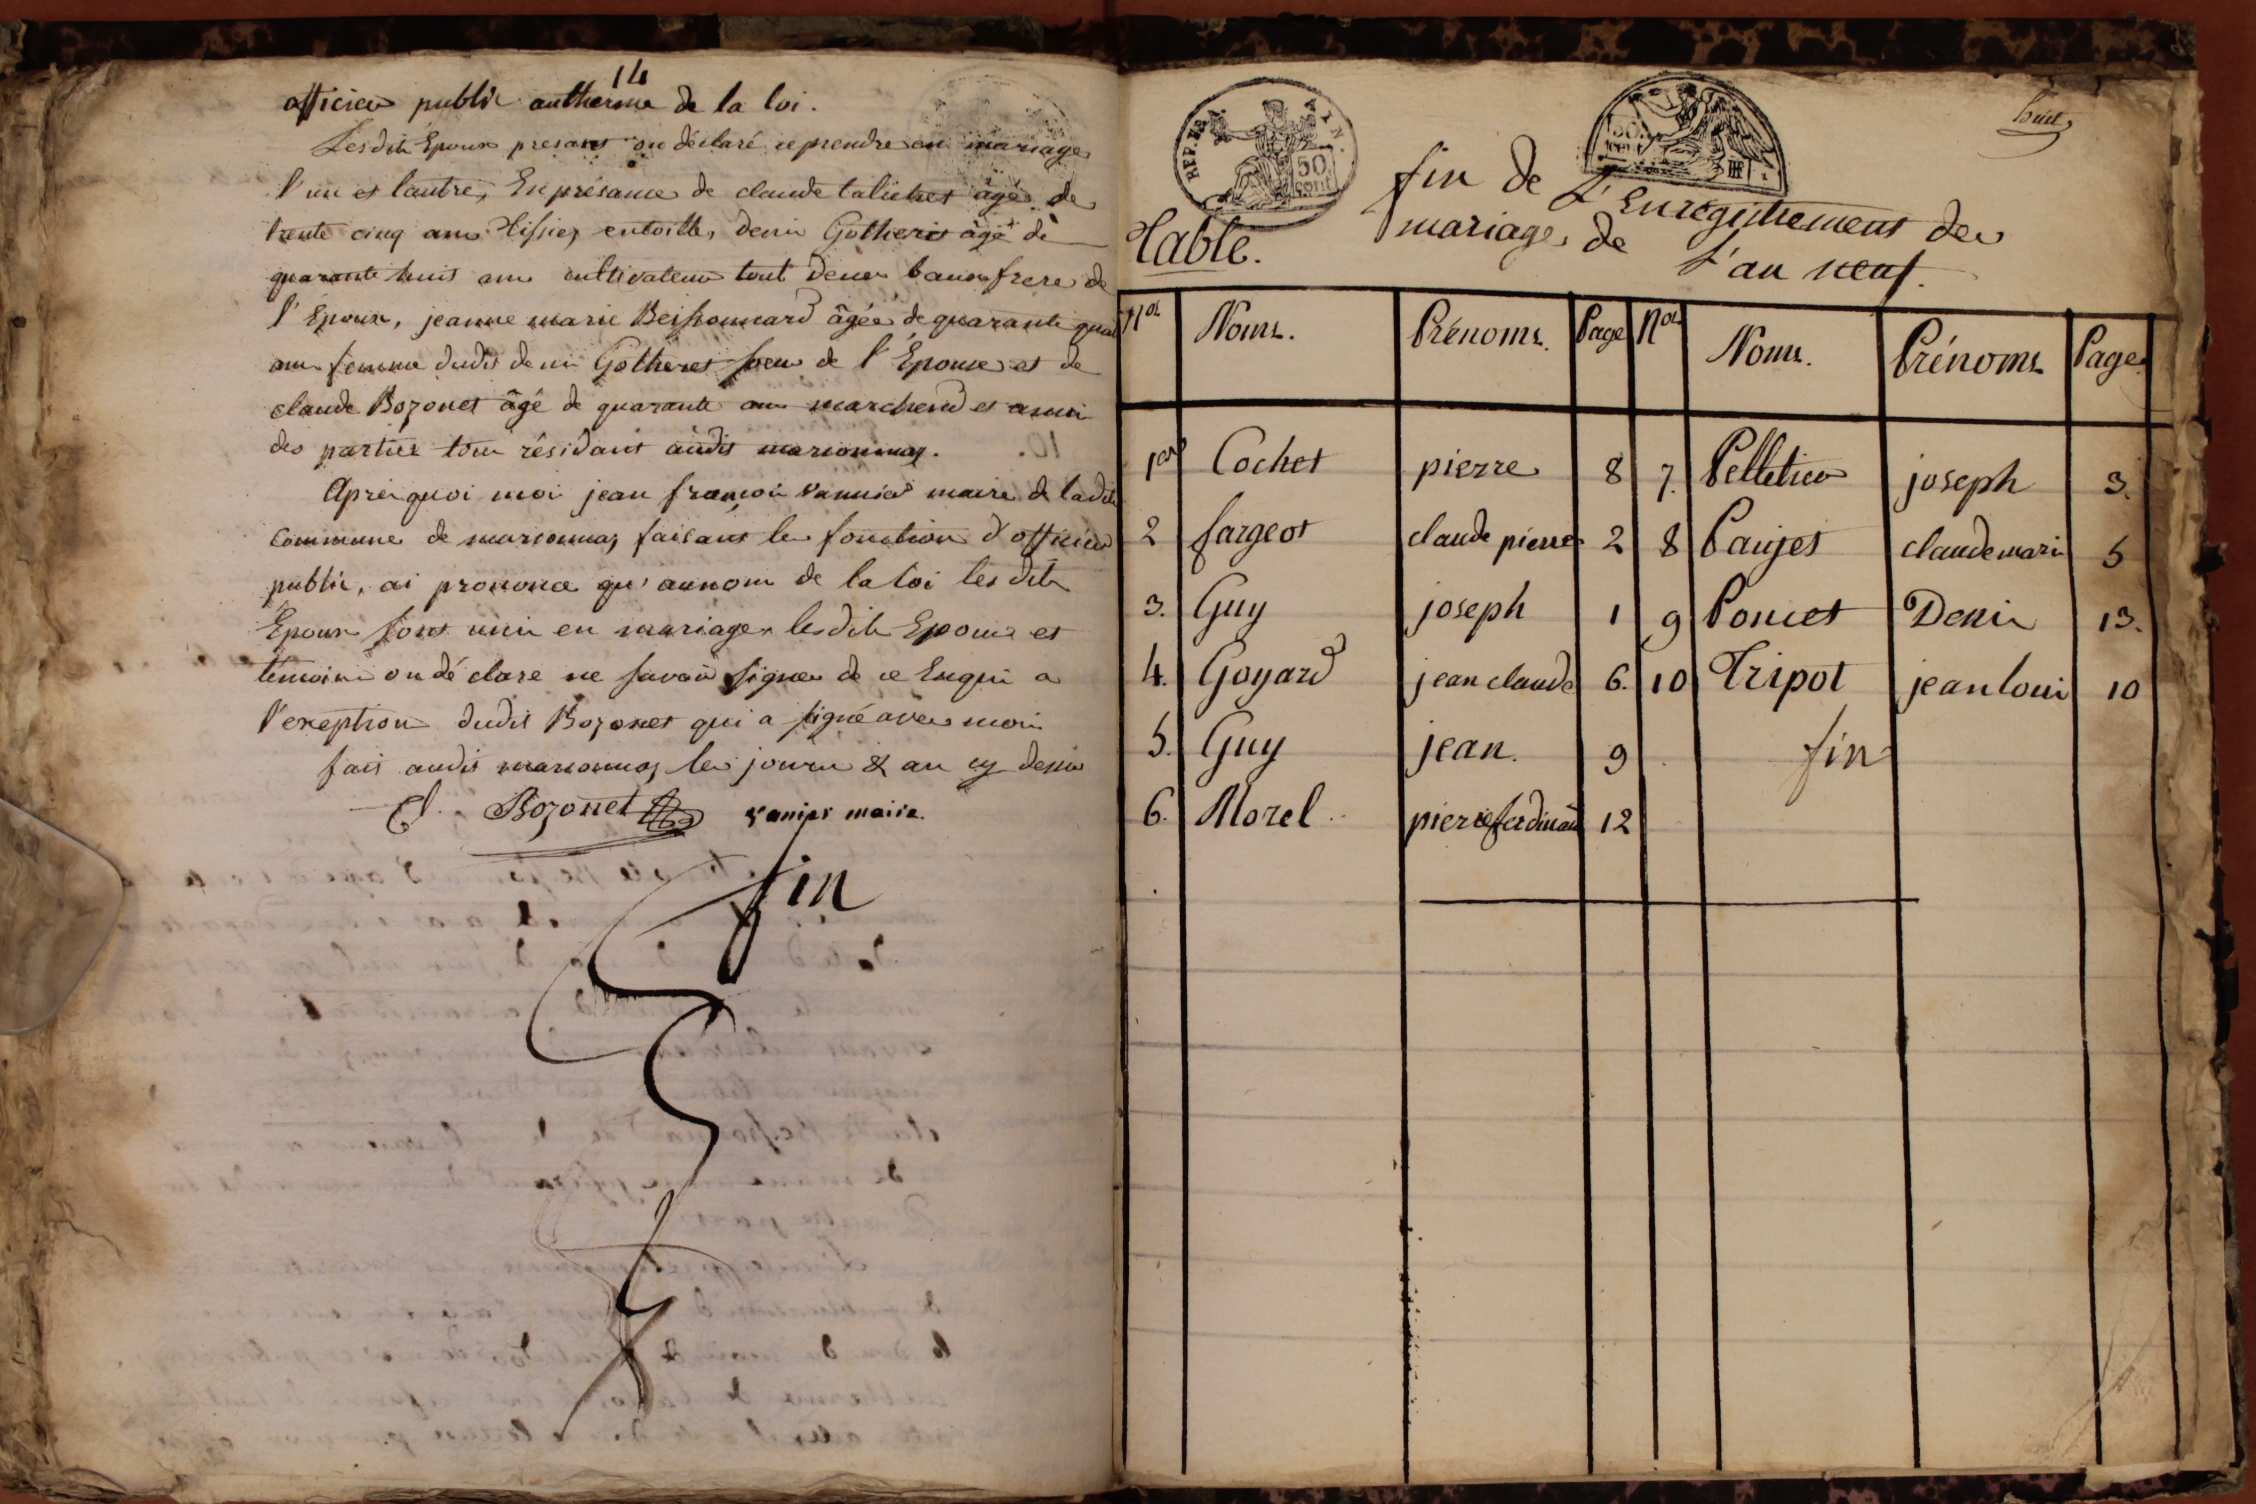 14
officier public autherme de la loi.
Lesdits Epoux presants on déclaré ce prendre en mariage
l'un et lautre, En présance de claude talichet âgé de
trente cinq ans tissier entoille, denis Gotheret âgé de
quarante huit ans cultivateur tout deux baux frere de
l'Epoux, jeanne marie Beissonnard âgée de quarante quat
ans femme dudit denis Gotheret soeur de l'Epouse et de
claude Bozonet âgé de quarante ans marchend et amis
des parties tous résidant audit marsonnas.
Après quoi moi jean francois vannier maire de ladite
commune de marsonnas faisant les fonction d'officier
public, ai prononcé qu'aunom de la loi lesdits
Epoux sont unis en mariage, lesdits Epoux et
témoins on déclare ne savoir signer de ce Enquis a
l'exeption dudit Bozonet qui a signé avec moi
fait audit marsonnas les jours & an cy dessus
Cl. Bozonet vanier maire.
fin
huit
REP. FRA. AIN.
50 CENT
fin de L'Enregistrement des
mariages de L'an neuf.
Table.
Nos Noms. Prénoms. Page Nos Noms. Prénoms Page
1er Cochet pierre 8 7. Pelletier joseph 3.
2 fargeot claude pierre 2 8 Paujet claude marie 5
3. Guy joseph 1 9 Poncet Denis 13.
4. Goyard jean claude 6. 10 Tripot jean louis 10
5. Guy jean. 9 fin
6. Morel pierre ferdinand 12